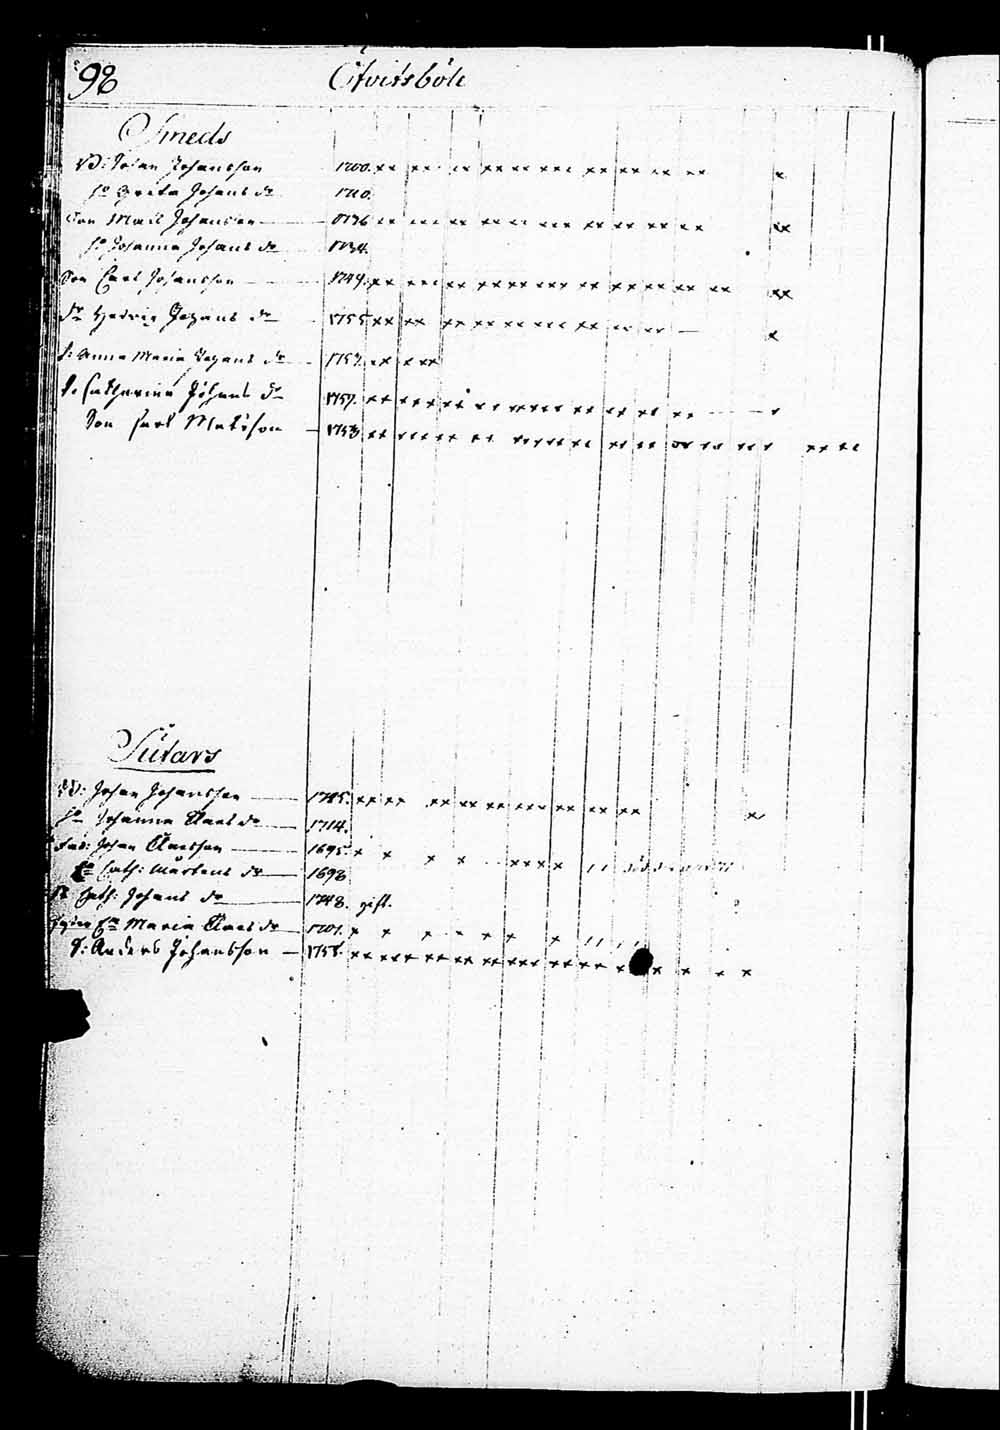 98 Öfvitsböle
Smeds
W: Johan Johansson 1700. xx xx xx xx xx xx xx xx xx xx x
ho Greta Johans dr 1710.
Son Matts Johansson 1736 xx xx xx xx xx xx xx xx xx xx xx
ho Johanna Johans dr 1734.
Son Carl Johansson 1749. xx xx xx xx xx xx xx xx xx xx xx xx
dr Hedvig Johans dr 1755 xx xx xx xx xx xx xx xx xx x
d: Anna Maria Johans dr 1753. xx x xx
d. Catharina Johans dr 1757. xx xx xx xx xx xx xx xx xx xx xx
Son Carl Matsson 1758 xx xx xx xx xx xx xx xx xx xx xx xx xx xx
Sutars
W: Johan Johansson 1745. xx xx xx xx xx xx xx xx xx xx x
ho Johanna Claes dr 1714.
Johan Claesson 1695. x x x x xxx x
Cath: Mårtens dr 1698
Cath: Johans dr 1748. gift.
Maria Claes dr 1701. x x x x x x x
S: Anders Johansson 1758. xx xx xx xx xx xx xx xx x x x x x